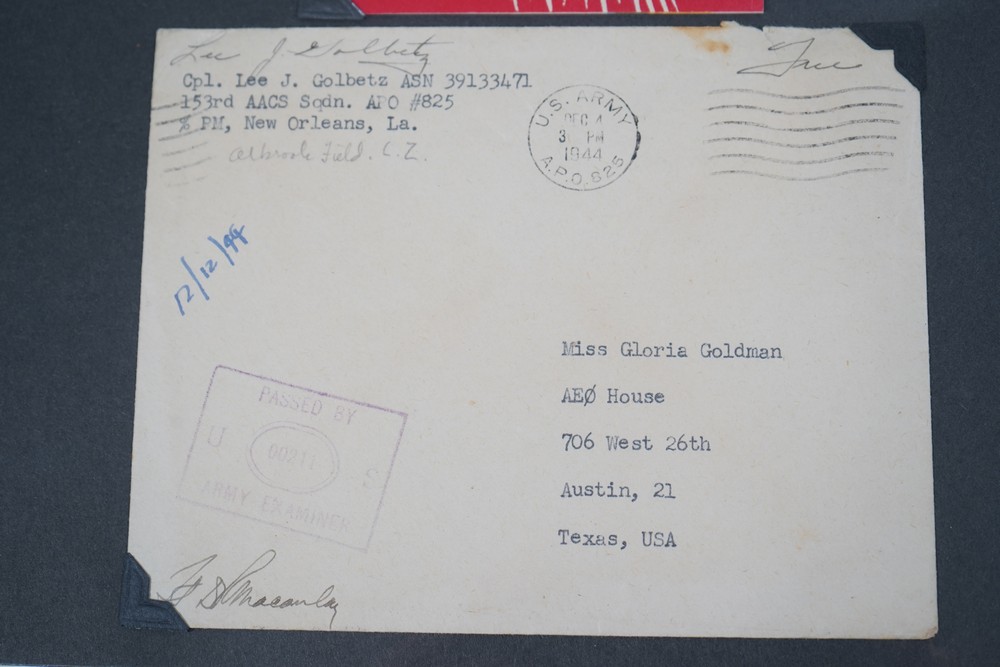 Lee J Golbetz
Free
Cpl. Lee J. Golbetz ASN 39133471
153rd AACS Sqdn. APO #825
% PM, New Orleans, La.
Albrook Field. C.Z.
U.S. ARMY
DEC 4
3 PM
1944
A.P.O. 825
12/12/44
Miss Gloria Goldman
AEØ House
706 West 26th
Austin, 21
Texas, USA
PASSED BY
U S
ARMY EXAMINER
Macaulay